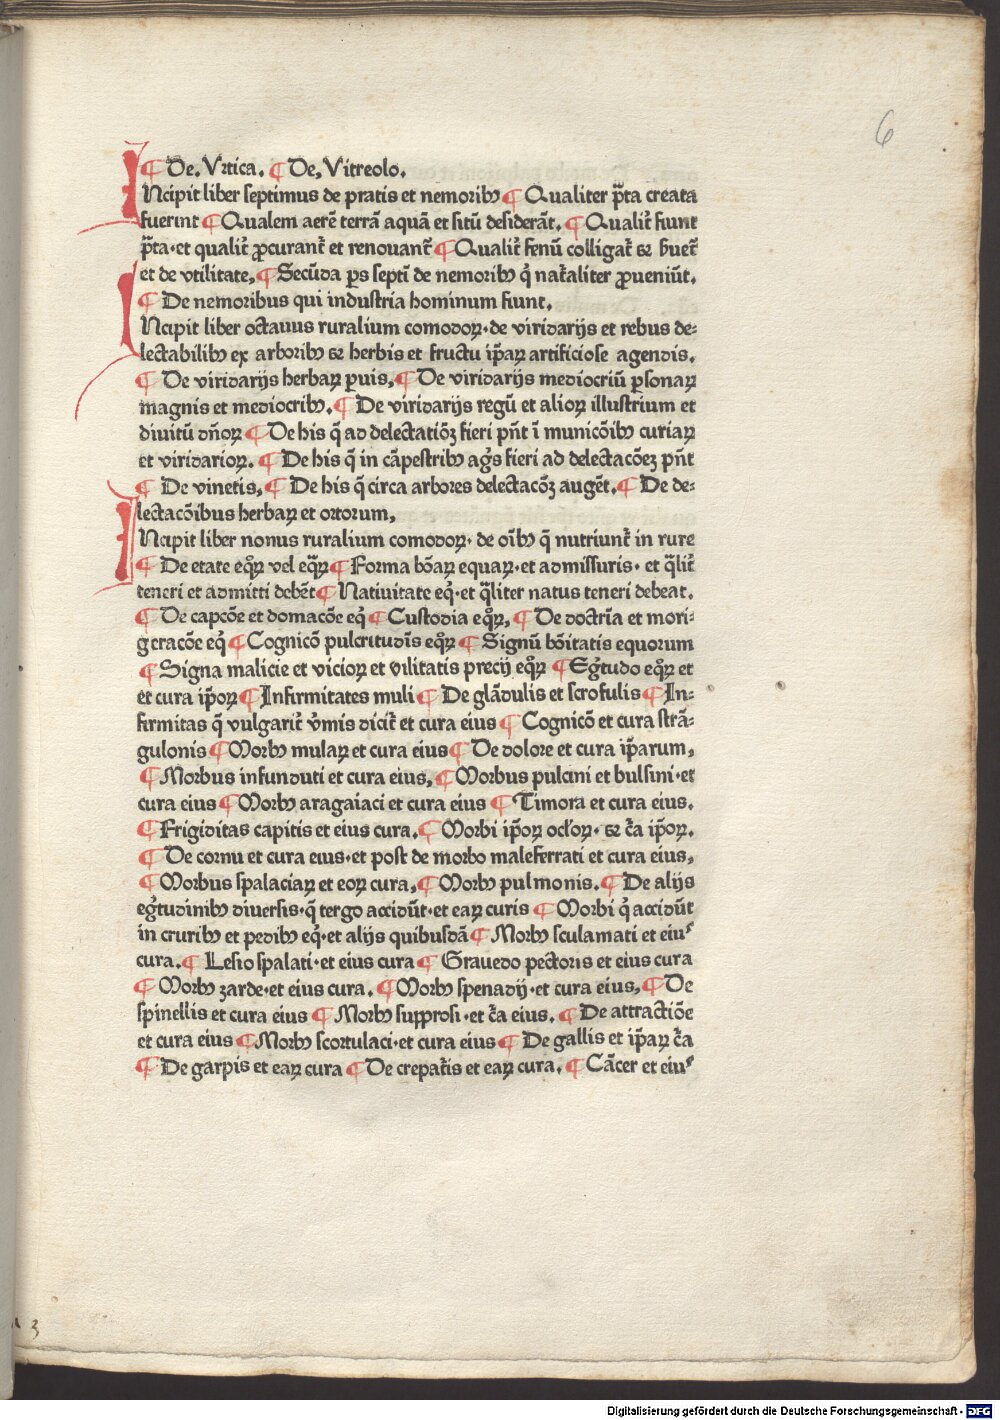 6
¶ De. Vrtica. ¶ De. Vitreolo.
INcipit liber septimus de pratis et nemoribꝰ ¶ Qualiter p̃ta creata
fuerint ¶ Qualem aerẽ terrã aquã et sitũ desiderãt. ¶ Qualit̃ fiunt
p̃ta·et qualit̃ ꝓcurant̃ et renouant̃ ¶ Qualit̃ fenũ colligat̃ ⁊ ẜuet̃
et de vtilitate, ¶ Secũda ꝑs septi de nemoribꝰ q̇ nat̃aliter ꝓueniũt.
¶ De nemoribus qui industria hominum fiunt.
INcipit liber octauus ruralium comodoꝝ·de viridarijs et rebus de⸗
lectabilibꝰ ex arboribꝰ ⁊ herbis et fructu ip̃aꝝ artificiose agendis.
¶ De viridarijs herbaꝝ puis, ¶ De viridarijs mediocriũ ꝑsonaꝝ
magnis et mediocribꝰ. ¶ De viridarijs regũ et alioꝝ illustrium et
diuitũ dñoꝝ ¶ De his q̃ ad delectatiõꝫ fieri pñt ĩ municõibꝰ curiaꝝ
et viridarioꝝ. ¶ De his q̃ in cãpestribꝰ ag̃s fieri ad delectacõeꝫ pñt
¶ De vinetis, ¶ De his q̃ circa arbores delectacõꝫ augẽt. ¶ De de⸗
lectacõibus herbaꝝ et ortorum,
INcipit liber nonus ruralium comodoꝝ· de oĩbꝰ q̃ nutriunt̃ in rure
¶ De etate eqͦꝝ vel eq̃ꝝ ¶ Forma bõaꝝ equaꝝ·et admissuris· et q̃lit̃
teneri et admitti debẽt ¶ Natiuitate eq̇·et q̃liter natus teneri debeat.
¶ De capcõe et domacõe eq̇ ¶ Custodia eqͦꝝ, ¶ De doctrĩa et mori⸗
geracõe eq̇ ¶ Cognicõ pulcritudĩs eqͦꝝ ¶ Signũ bõitatis equorum
¶ Signa malicie et vicioꝝ et vilitatis precij eqͦꝝ ¶ Eg̃tudo eqͦꝝ et
et cura ip̃oꝝ ¶ Infirmitates muli ¶ De glãdulis et scrofulis ¶ In⸗
firmitas q̃ vulgarit̃ v̉mis dicit̃ et cura eius ¶ Cognicõ et cura strã⸗
gulonis ¶ Morbꝰ mulaꝝ et cura eius ¶ De dolore et cura ip̃arum,
¶ Morbus infunduti et cura eius, ¶ Morbus pulcini et bulsini·et
cura eius ¶ Morbꝰ aragaiaci et cura eius ¶ Timora et cura eius.
¶ Frigiditas capitis et eius cura. ¶ Morbi ip̃oꝝ ocl̃oꝝ· ⁊ c̃a ip̃oꝝ.
¶ De cornu et cura eius·et post de morbo maleferrati et cura eius,
¶ Morbus spalaciaꝝ et eoꝝ cura, ¶ Morbꝰ pulmonis. ¶ De alijs
eg̃tudinibꝰ diuersis·q̃ tergo accidũt·et eaꝝ curis ¶ Morbi q̇ accidũt
in cruribꝰ et pedibꝰ eq̇·et alijs quibusdã ¶ Morbꝰ sculamati et eiuꝰ
cura. ¶ Lesio spalati·et eius cura ¶ Grauedo pectoris et eius cura
¶ Morbꝰ zarde·et eius cura. ¶ Morbꝰ spenadij·et cura eius, ¶ De
spinellis et cura eius ¶ Morbꝰ supprosi·et c̃a eius. ¶ De attractiõe
et cura eius ¶ Morbꝰ scortulaci·et cura eius ¶ De gallis et ip̃aꝝ c̃a
¶ De garpis et eaꝝ cura ¶ De crepat̃is et eaꝝ cura. ¶ Cãcer et eiuꝰ
3
Digitalisierung gefördert durch die Deutsche Forschungsgemeinschaft - DFG